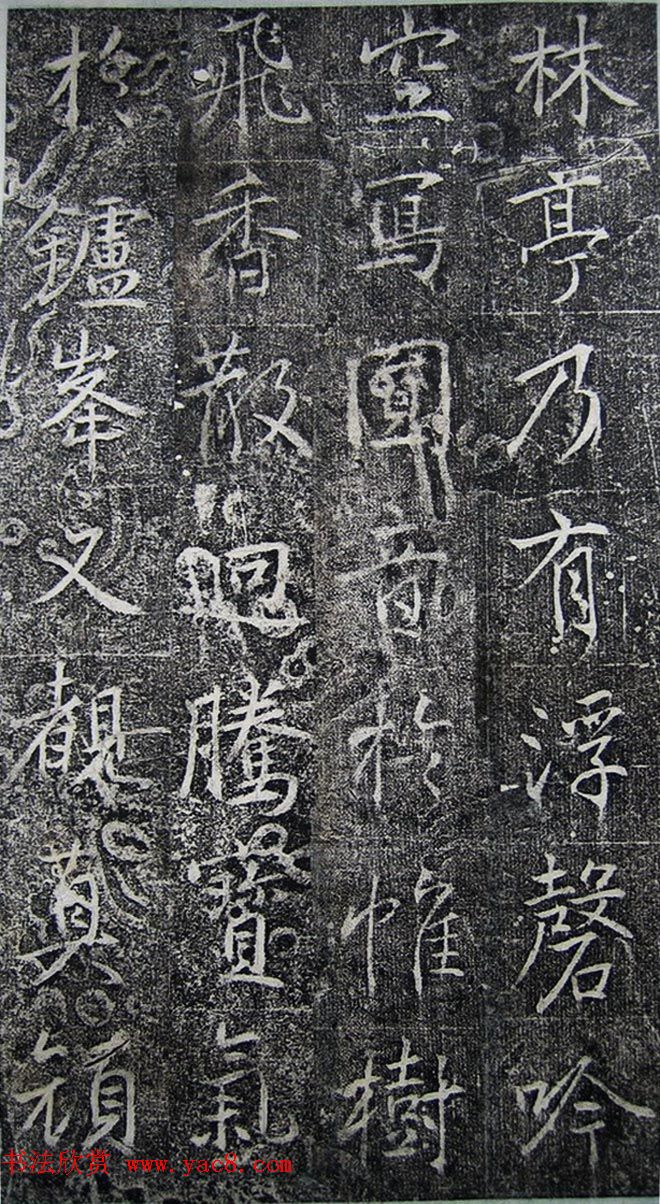 林亭乃有浮磬吟
空寫圓音於帷樹
飛香散迴騰寶氣
於鑪峯又覩
书法欣赏 www.yac8.com